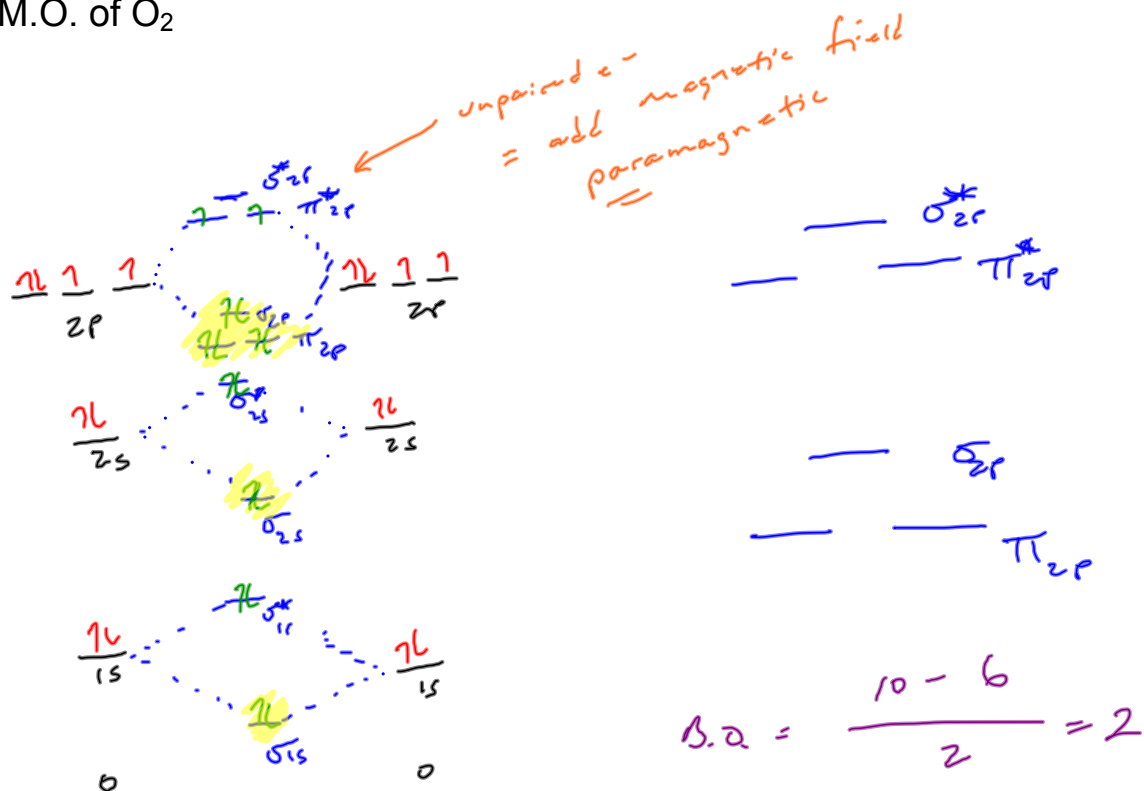 M.O. of O₂
unpaired e⁻
= add magnetic field
paramagnetic
σ*2p
π*2p
2p
2p
σ2p
π2p
σ*2s
2s
2s
σ2s
σ*1s
1s
1s
σ1s
O
O
σ*2p
π*2p
σ2p
π2p
B.O. = 10 - 6 / 2 = 2